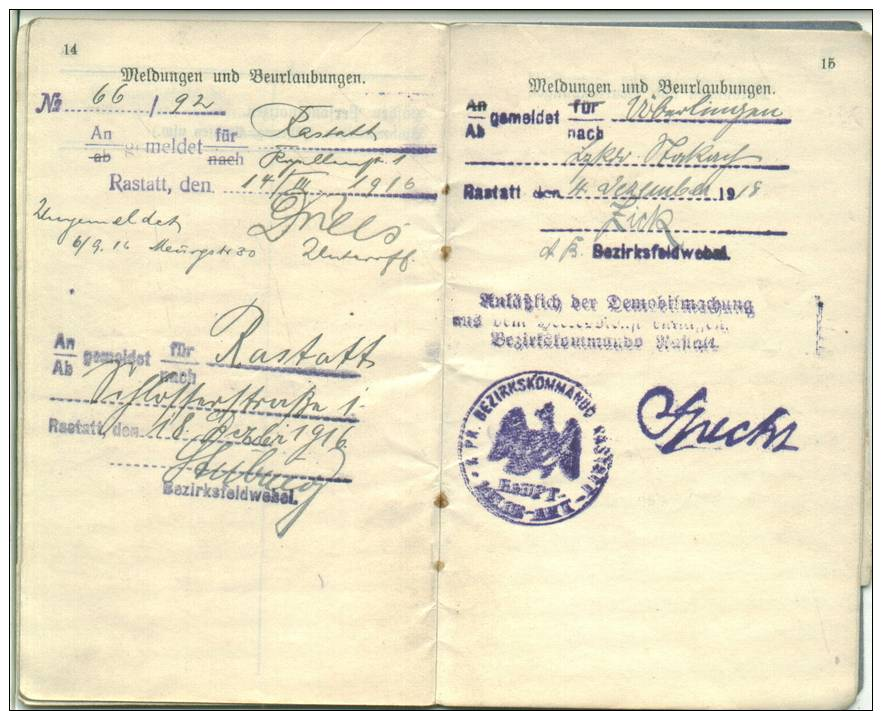 14
Meldungen und Beurlaubungen.
No 66 / 92
An
ab
gemeldet
für
nach
Rastatt
1
Rastatt, den 14/III 1916
Umgemeldet
6/9.16 Murgstr 30
Unteroff.
An
Ab
gemeldet
für
nach
Rastatt
Schlosserstraße 1
Rastatt, den 18. Dezber 1916
Bezirksfeldwebel.
15
Meldungen und Beurlaubungen.
An
Ab
gemeldet
für
nach
Überlingen
Stockach
Rastatt den 4. Dezember 1918
Zick
Bezirksfeldwebel.
Anläßlich der Demobilmachung
aus dem Heeresdienst entlassen.
Bezirkskommando Rastatt.
K. PR. BEZIRKSKOMMANDO RASTATT
HAUPT-
MELDE-AMT
Specht